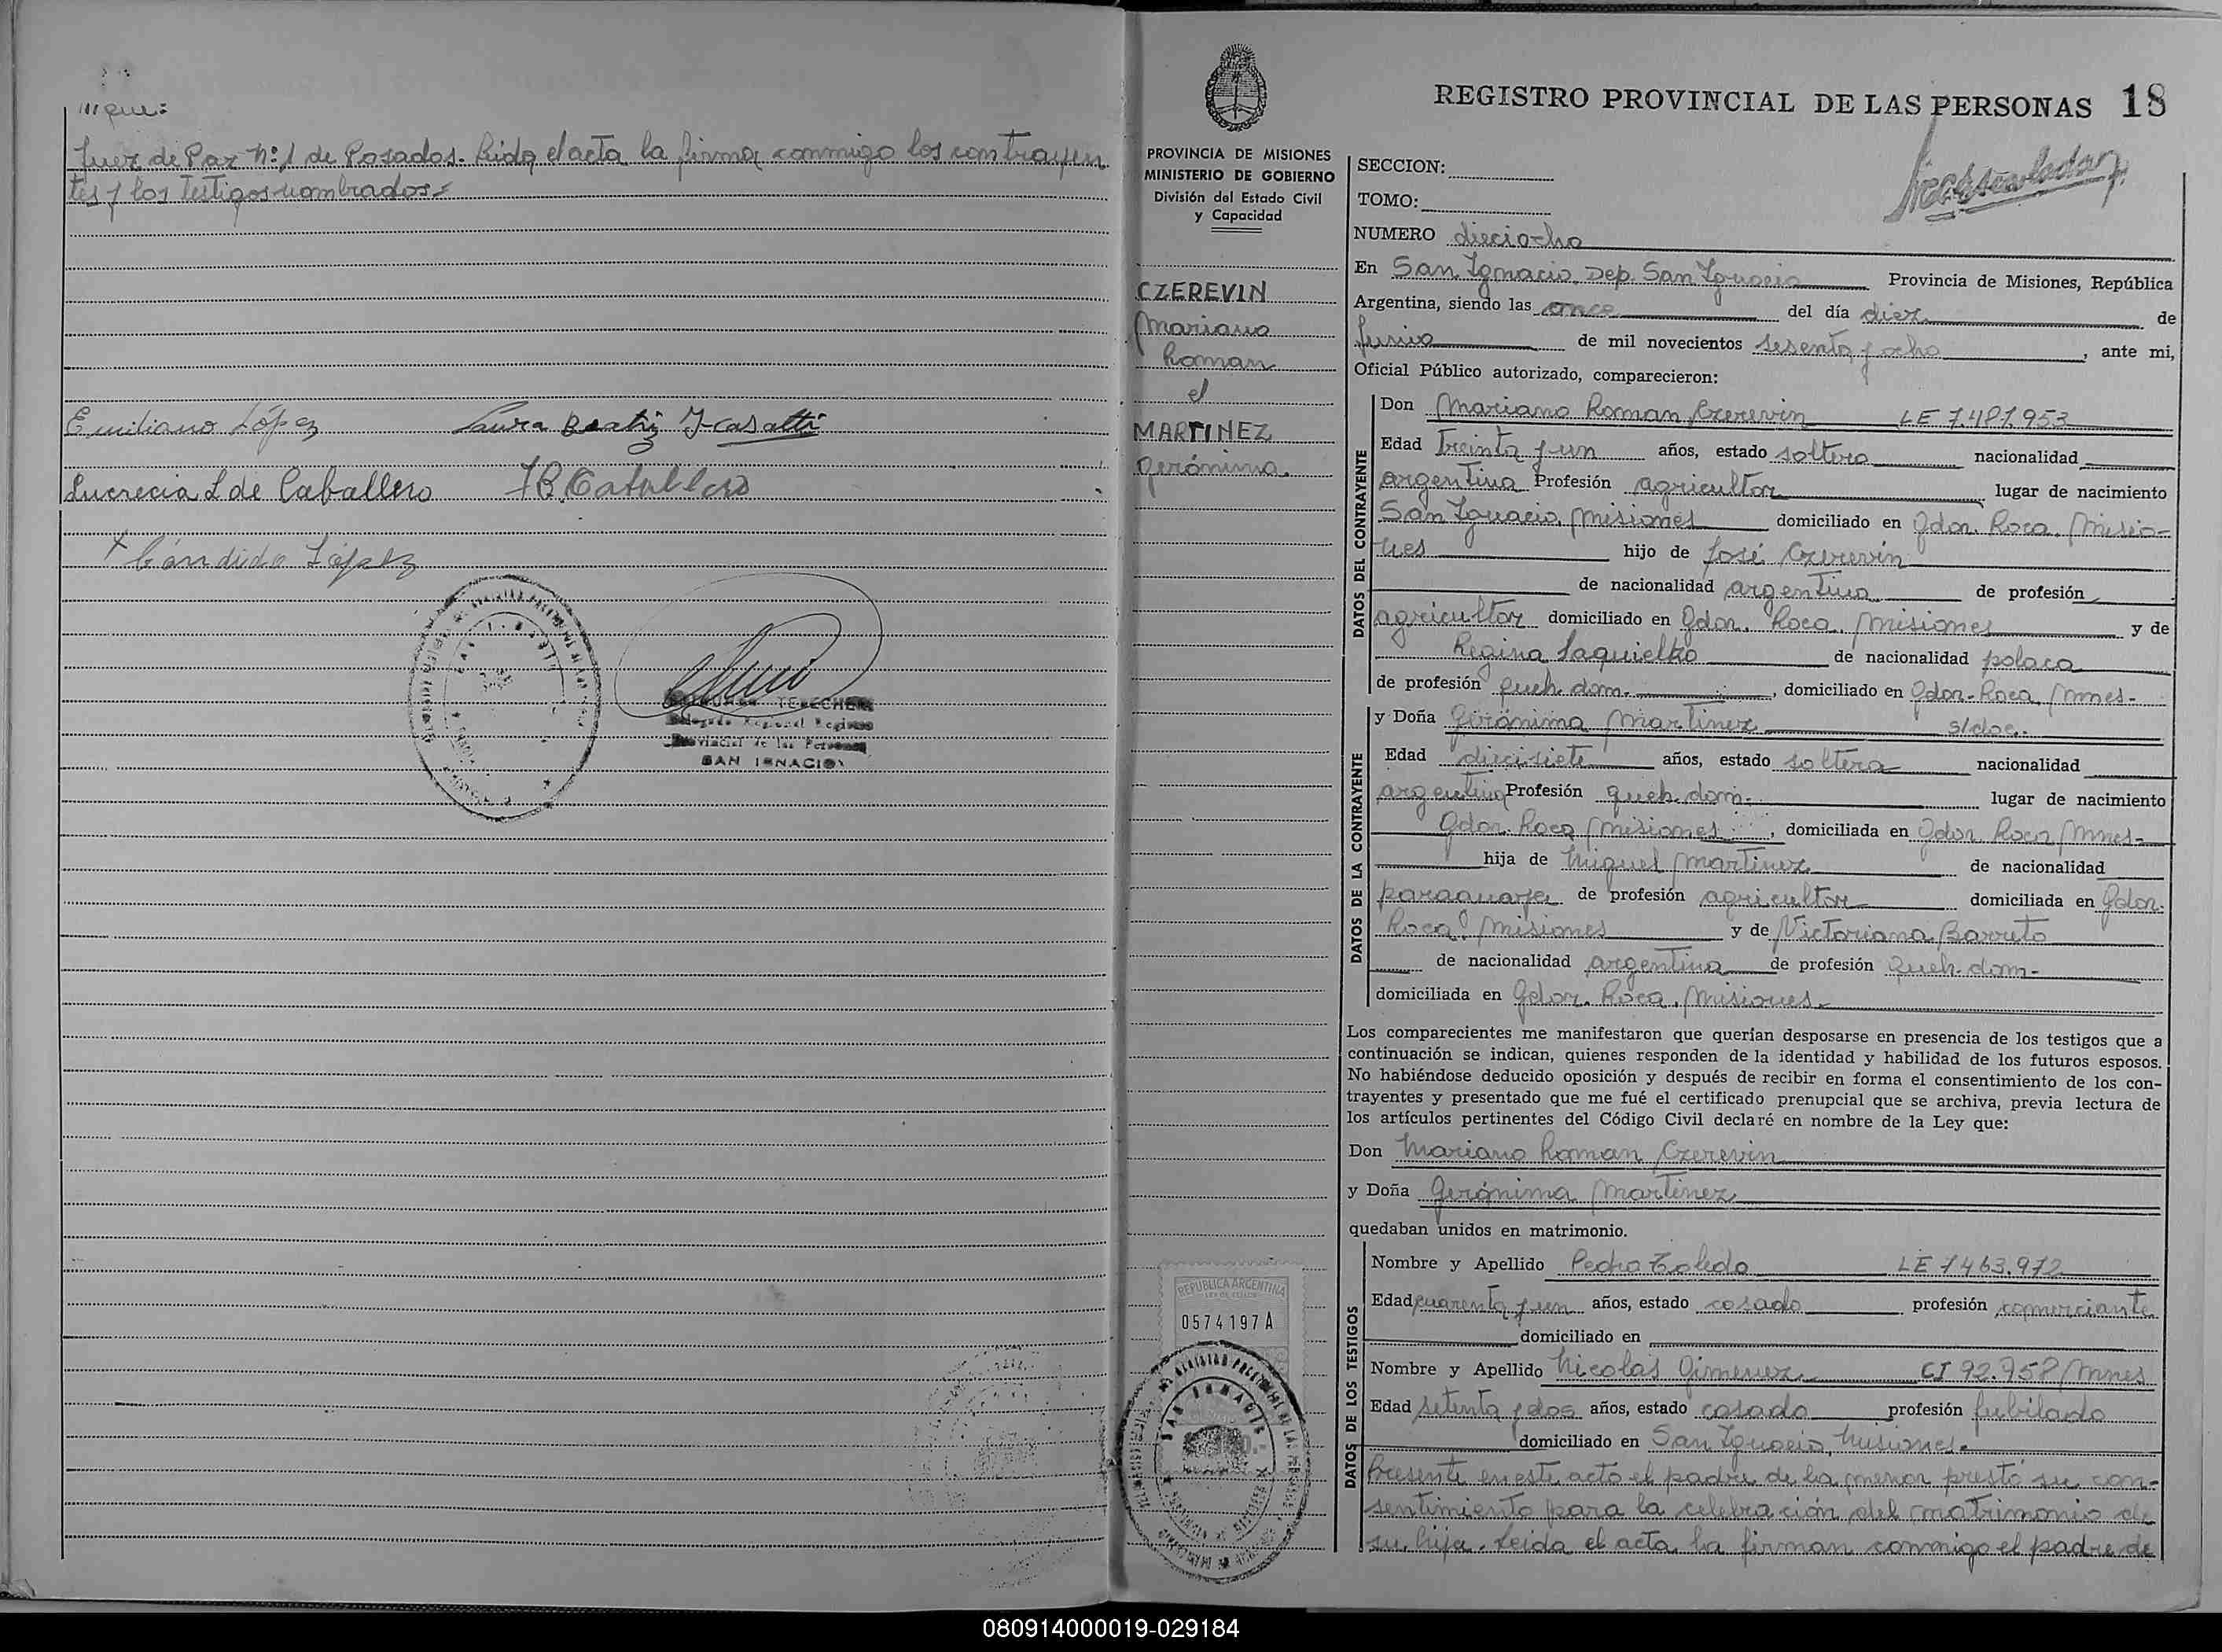 Juez de Paz Nº 1 de Posadas. Leida el acta la firman conmigo los contrayen
tes y los testigos nombrados=
Emiliano López
Laura Beatriz
Lucrecia L de Caballero
Caballero
Cándido López
SAN IGNACIO
REGISTRO PROVINCIAL DE LAS PERSONAS 18
PROVINCIA DE MISIONES
MINISTERIO DE GOBIERNO
División del Estado Civil
y Capacidad
CZEREVIN
Mariano
Roman
el
MARTINEZ
Gerónima.
REPUBLICA ARGENTINA
0574197 A
SAN IGNACIO
SECCION:
TOMO:
NUMERO dieciocho
En San Ignacio, Dep. San Ignacio Provincia de Misiones, República
Argentina, siendo las once del día diez de
Junio de mil novecientos sesenta y ocho, ante mi,
Oficial Público autorizado, comparecieron:
DATOS DEL CONTRAYENTE
Don Mariano Roman Czerevin LE 7.487.953
Edad treinta y un años, estado soltero nacionalidad
argentina Profesión agricultor lugar de nacimiento
San Ignacio, Misiones domiciliado en Gdor. Roca, Misio-
nes hijo de José Czerevin
de nacionalidad argentina de profesión
agricultor domiciliado en Gdor. Roca, Misiones y de
Regina Saquielko de nacionalidad polaca
de profesión queh. dom., domiciliado en Gdor. Roca, Mnes-
DATOS DE LA CONTRAYENTE
y Doña Gerónima Martinez s/doc.
Edad diecisiete años, estado soltera nacionalidad
argentina Profesión queh. dom. lugar de nacimiento
Gdor. Roca, Misiones, domiciliada en Gdor. Roca, Mnes-
hija de Miguel Martinez de nacionalidad
paraguaya de profesión agricultor domiciliada en Gdor.
Roca, Misiones y de Victoriana Barreto
de nacionalidad argentina de profesión Queh. dom-
domiciliada en Gdor. Roca, Misiones.
Los comparecientes me manifestaron que querían desposarse en presencia de los testigos que a
continuación se indican, quienes responden de la identidad y habilidad de los futuros esposos.
No habiéndose deducido oposición y después de recibir en forma el consentimiento de los con-
trayentes y presentado que me fué el certificado prenupcial que se archiva, previa lectura de
los artículos pertinentes del Código Civil declaré en nombre de la Ley que:
Don Mariano Roman Czerevin
y Doña Gerónima Martinez
quedaban unidos en matrimonio.
DATOS DE LOS TESTIGOS
Nombre y Apellido Pedro Toledo LE 7463.972
Edad cuarenta y un años, estado casado profesión comerciante
domiciliado en
Nombre y Apellido Nicolas Gimenez CI 92.758 Mnes
Edad setenta y dos años, estado casado profesión Jubilado
domiciliado en San Ignacio, Misiones.
Presente en este acto el padre de la menor prestó su con-
sentimiento para la celebración del matrimonio de
su hija. Leida el acta la firman conmigo el padre de
080914000019-029184